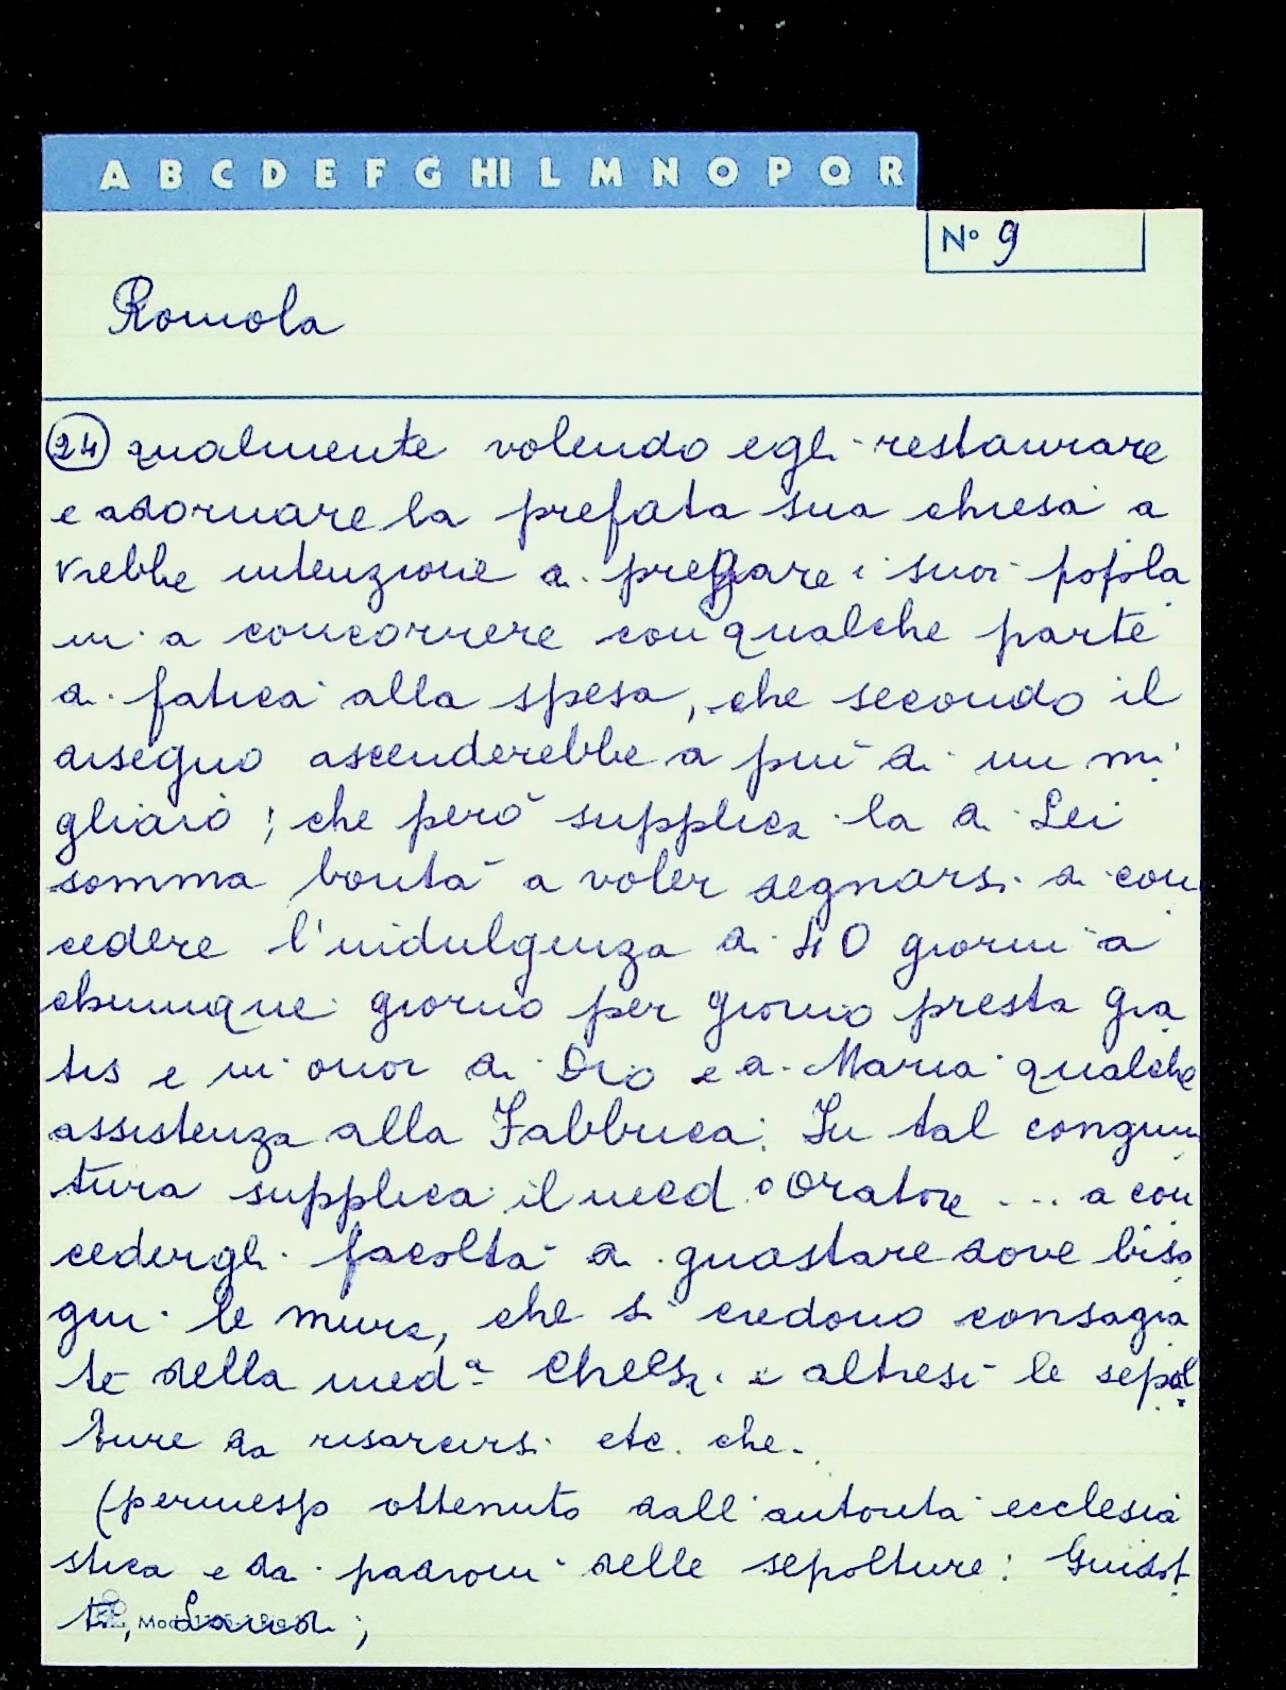 A B C D E F G HI L M N O P Q R
N° 9
Romola
24 qualmente volendo egli restaurare
e adornare la prefata sua chiesa a
vrebbe intenzione di pregare i suoi popola
ni a concorrere con qualche parte
di fatica alla spesa, che secondo il
disegno ascenderebbe a più di un mi
gliaio; che però supplica la di Lei
somma bontà a voler degnarsi di con
cedere l'indulgenza di 40 giorni a
chiunque giorno per giorno presta gra
tis e in onor di Dio e di Maria qualche
assistenza alla Fabbrica. In tal congiun
tura supplica il med.o Oratore ... a con
cedergli facoltà di guastare dove biso
gni le mura, che si credono consagra
te della med.a Chiesa e altresì le sepol
ture da risarcirsi etc. che.
(permesso ottenuto dall'autorità ecclesia
stica e da padroni delle sepolture: Guidot
ti, Landi;